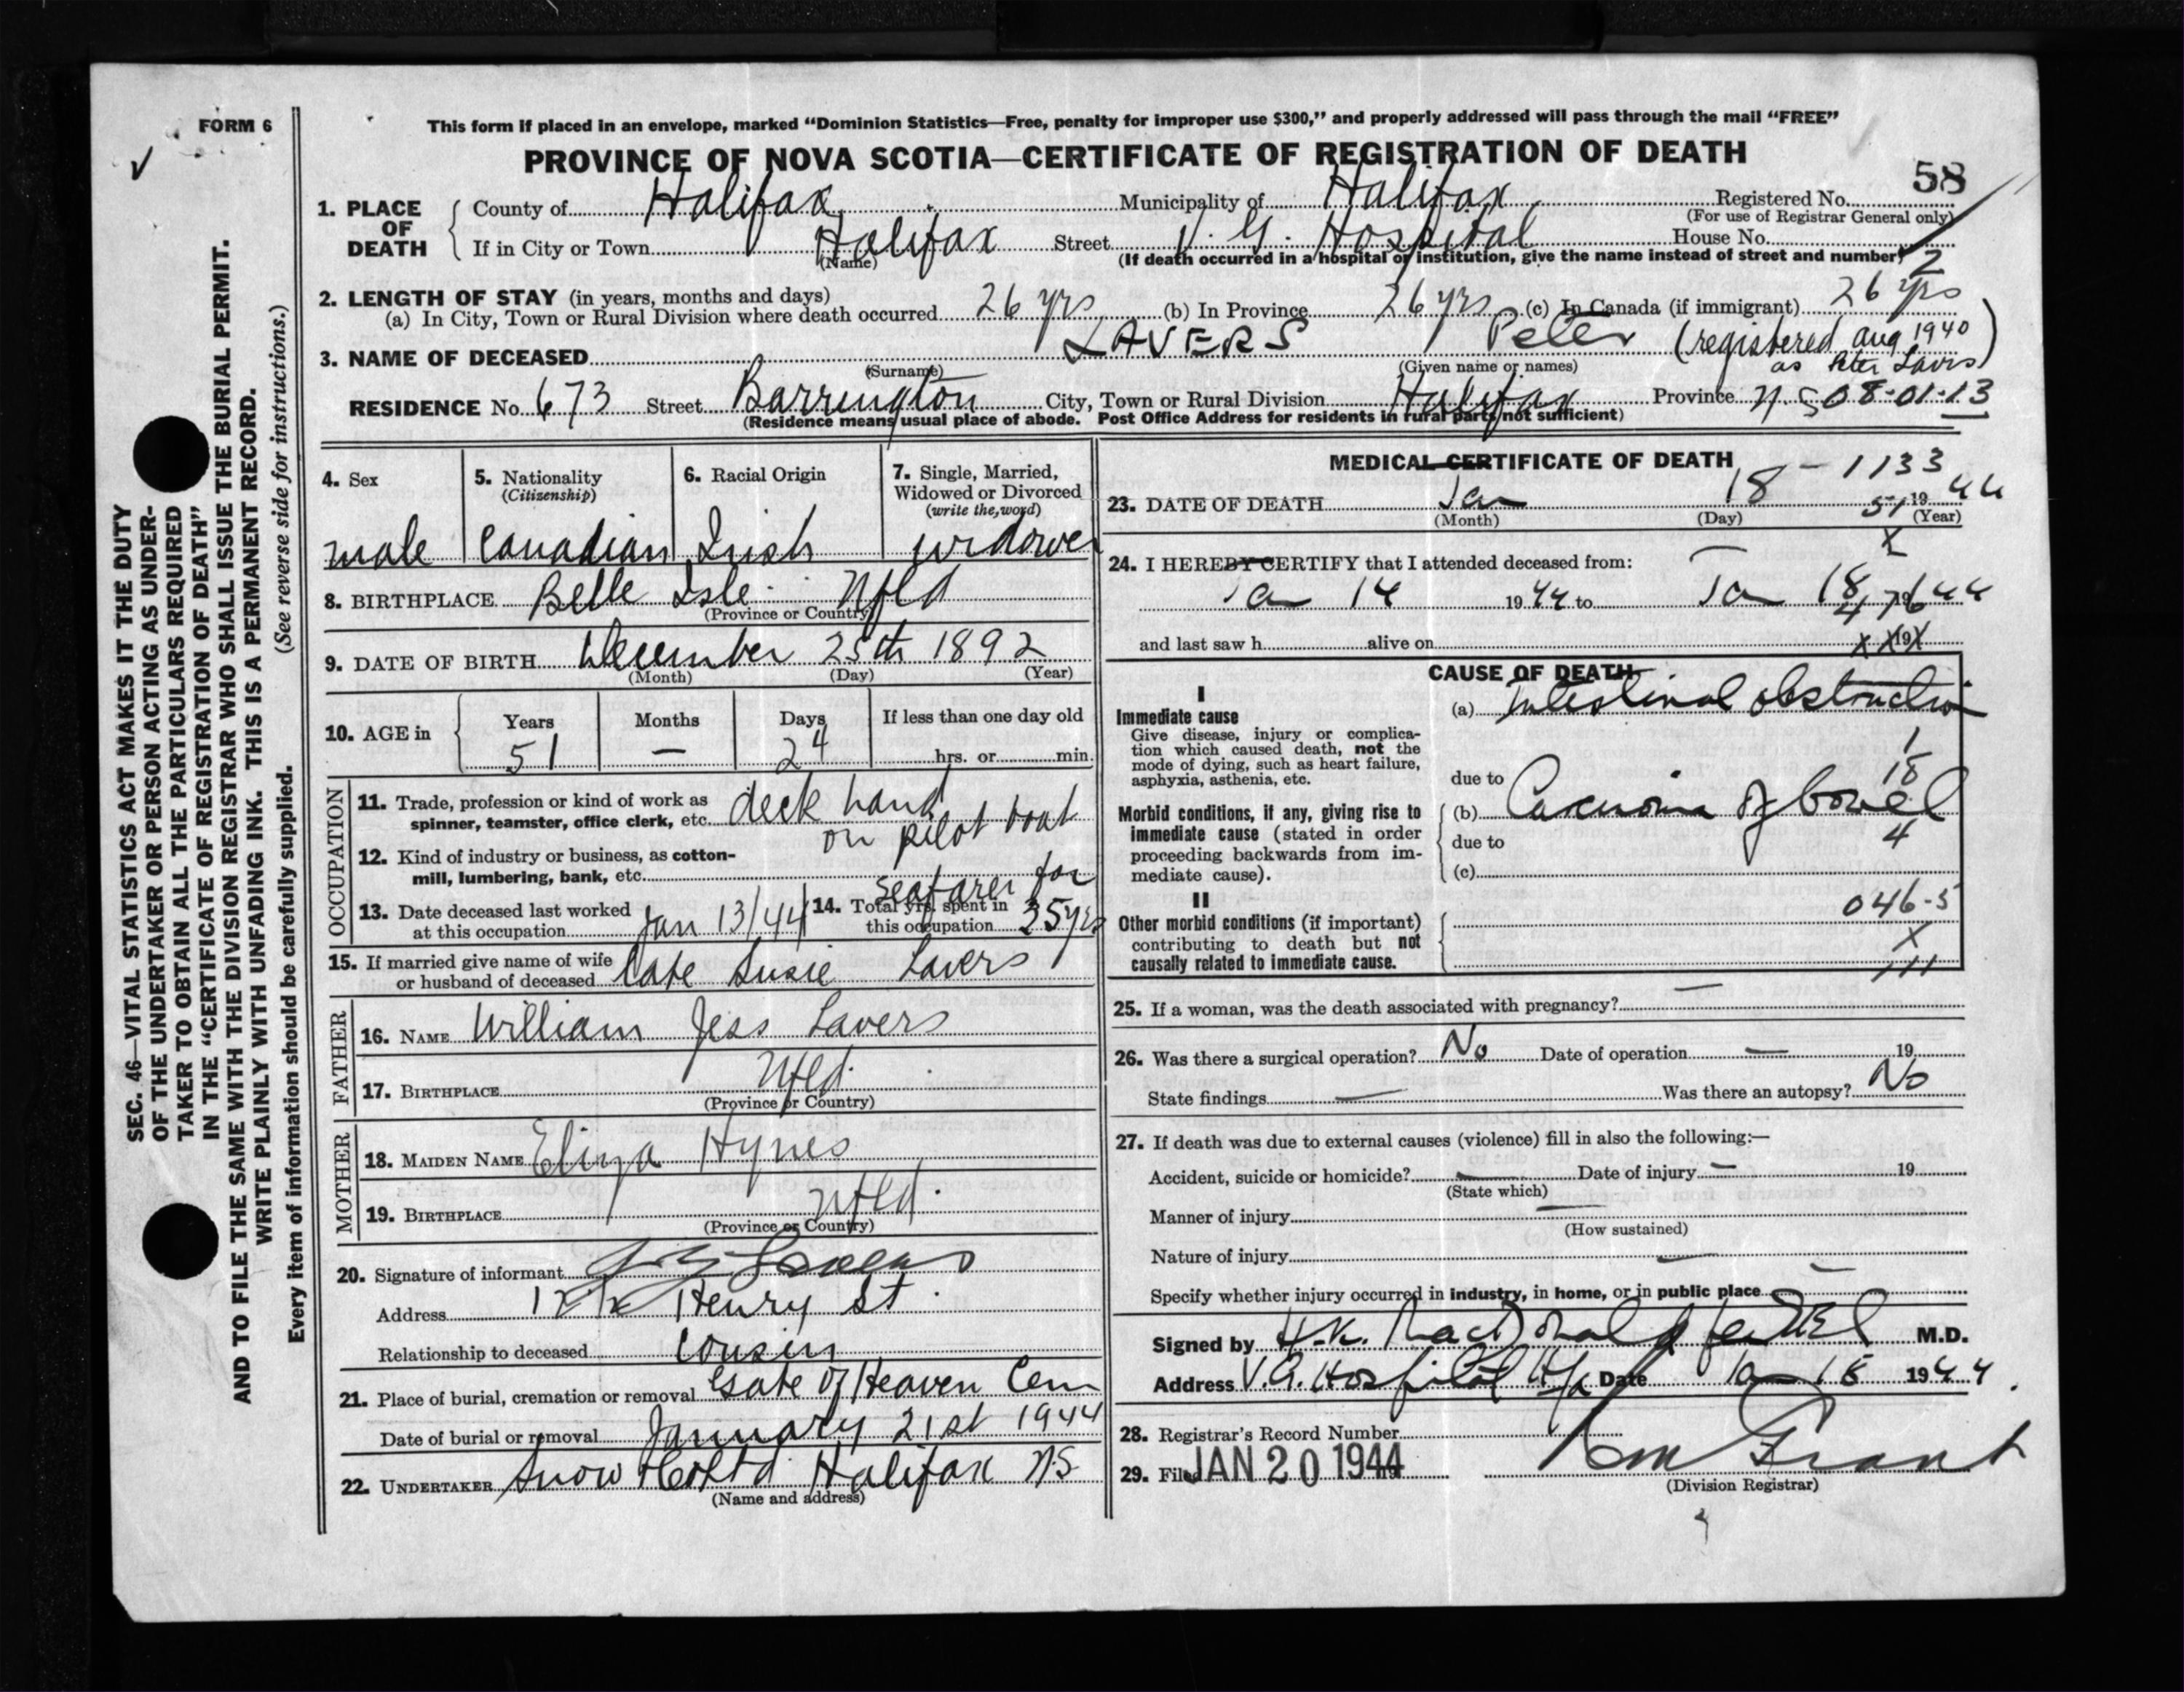 FORM 6
This form if placed in an envelope, marked “Dominion Statistics—Free, penalty for improper use $300,” and properly addressed will pass through the mail “FREE”
PROVINCE OF NOVA SCOTIA—CERTIFICATE OF REGISTRATION OF DEATH
58
1. PLACE OF DEATH County of Halifax Municipality of Halifax Registered No.
(For use of Registrar General only)
If in City or Town Halifax Street V. G. Hospital House No.
(Name) (If death occurred in a hospital or institution, give the name instead of street and number)
2
2. LENGTH OF STAY (in years, months and days)
(a) In City, Town or Rural Division where death occurred 26 yrs (b) In Province 26 yrs (c) In Canada (if immigrant) 26 yrs
3. NAME OF DECEASED LAVERS Peter (registered Aug 1940
as Peter Lavis)
(Surname) (Given name or names)
RESIDENCE No. 673 Street Barrington City, Town or Rural Division Halifax Province N.S 08-01-13
(Residence means usual place of abode. Post Office Address for residents in rural parts not sufficient)
4. Sex 5. Nationality (Citizenship) 6. Racial Origin 7. Single, Married, Widowed or Divorced (write the word)
male Canadian Irish widower
8. BIRTHPLACE Belle Isle Nfld
(Province or Country)
9. DATE OF BIRTH December 25th 1892
(Month) (Day) (Year)
10. AGE in Years Months Days If less than one day old
51 — 24 hrs. or min.
OCCUPATION
11. Trade, profession or kind of work as spinner, teamster, office clerk, etc. deck hand
on pilot boat
12. Kind of industry or business, as cotton-mill, lumbering, bank, etc.
seafarer for
13. Date deceased last worked at this occupation Jan 13/44 14. Total yrs. spent in this occupation 35 yrs
15. If married give name of wife or husband of deceased Late Susie Lavers
FATHER
16. NAME William Jess Lavers
17. BIRTHPLACE Nfld.
(Province or Country)
MOTHER
18. MAIDEN NAME Eliza Hynes
19. BIRTHPLACE Nfld.
(Province or Country)
20. Signature of informant
Address Henry St.
Relationship to deceased Cousin
21. Place of burial, cremation or removal Gate of Heaven Cem
Date of burial or removal January 21st 1944
22. UNDERTAKER Snow & Co Ltd Halifax N.S
(Name and address)
MEDICAL CERTIFICATE OF DEATH
1133
23. DATE OF DEATH Jan 18 - 1944
51
(Month) (Day) (Year)
X
24. I HEREBY CERTIFY that I attended deceased from:
Jan 14 1944 to Jan 18 1944
476
and last saw h alive on 19
x x x
CAUSE OF DEATH
I
Immediate cause
Give disease, injury or complication which caused death, not the mode of dying, such as heart failure, asphyxia, asthenia, etc.
(a) Intestinal obstruction
1
18
due to
Morbid conditions, if any, giving rise to immediate cause (stated in order proceeding backwards from immediate cause).
(b) Carcinoma of bowel
4
due to
(c)
II
Other morbid conditions (if important) contributing to death but not causally related to immediate cause.
046-5
X
111
25. If a woman, was the death associated with pregnancy? —
26. Was there a surgical operation? No Date of operation — 19
State findings — Was there an autopsy? No
27. If death was due to external causes (violence) fill in also the following:—
Accident, suicide or homicide? — Date of injury — 19
(State which)
Manner of injury —
(How sustained)
Nature of injury —
Specify whether injury occurred in industry, in home, or in public place —
Signed by H.K. MacDonald M.D.
Address V.G. Hospital Hfx Date Jan 18 1944
28. Registrar's Record Number
29. Filed JAN 20 1944 19 Grant
(Division Registrar)
SEC. 46—VITAL STATISTICS ACT MAKES IT THE DUTY
OF THE UNDERTAKER OR PERSON ACTING AS UNDER-
TAKER TO OBTAIN ALL THE PARTICULARS REQUIRED
IN THE “CERTIFICATE OF REGISTRATION OF DEATH”
AND TO FILE THE SAME WITH THE DIVISION REGISTRAR WHO SHALL ISSUE THE BURIAL PERMIT.
WRITE PLAINLY WITH UNFADING INK. THIS IS A PERMANENT RECORD.
Every item of information should be carefully supplied. (See reverse side for instructions.)